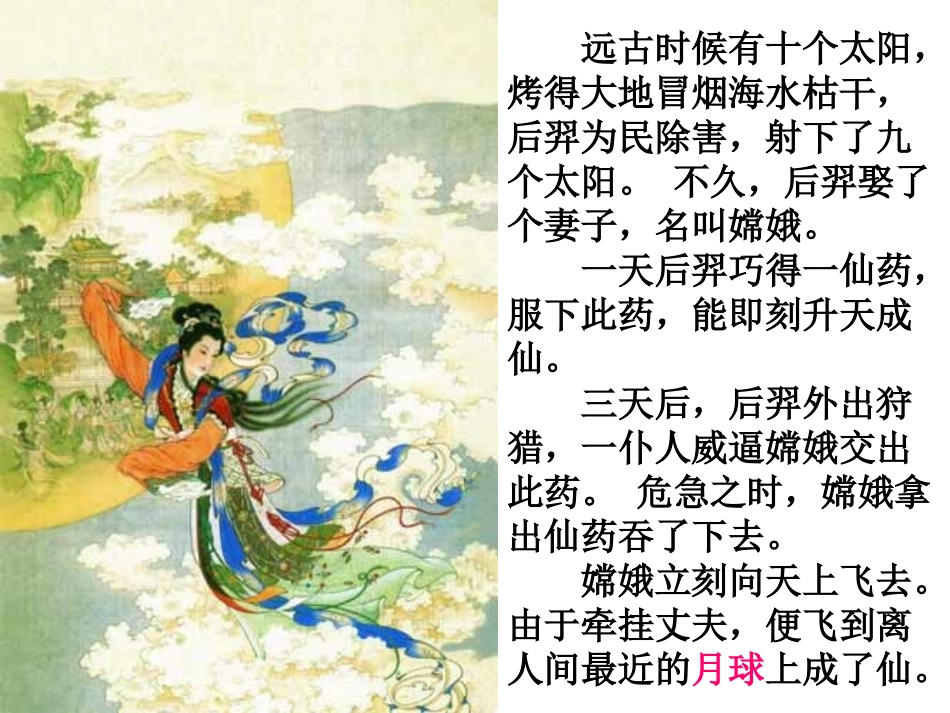 远古时候有十个太阳，
烤得大地冒烟海水枯干，
后羿为民除害，射下了九
个太阳。 不久，后羿娶了
个妻子，名叫嫦娥。
一天后羿巧得一仙药，
服下此药，能即刻升天成
仙。
三天后，后羿外出狩
猎，一仆人威逼嫦娥交出
此药。 危急之时，嫦娥拿
出仙药吞了下去。
嫦娥立刻向天上飞去。
由于牵挂丈夫，便飞到离
人间最近的月球上成了仙。